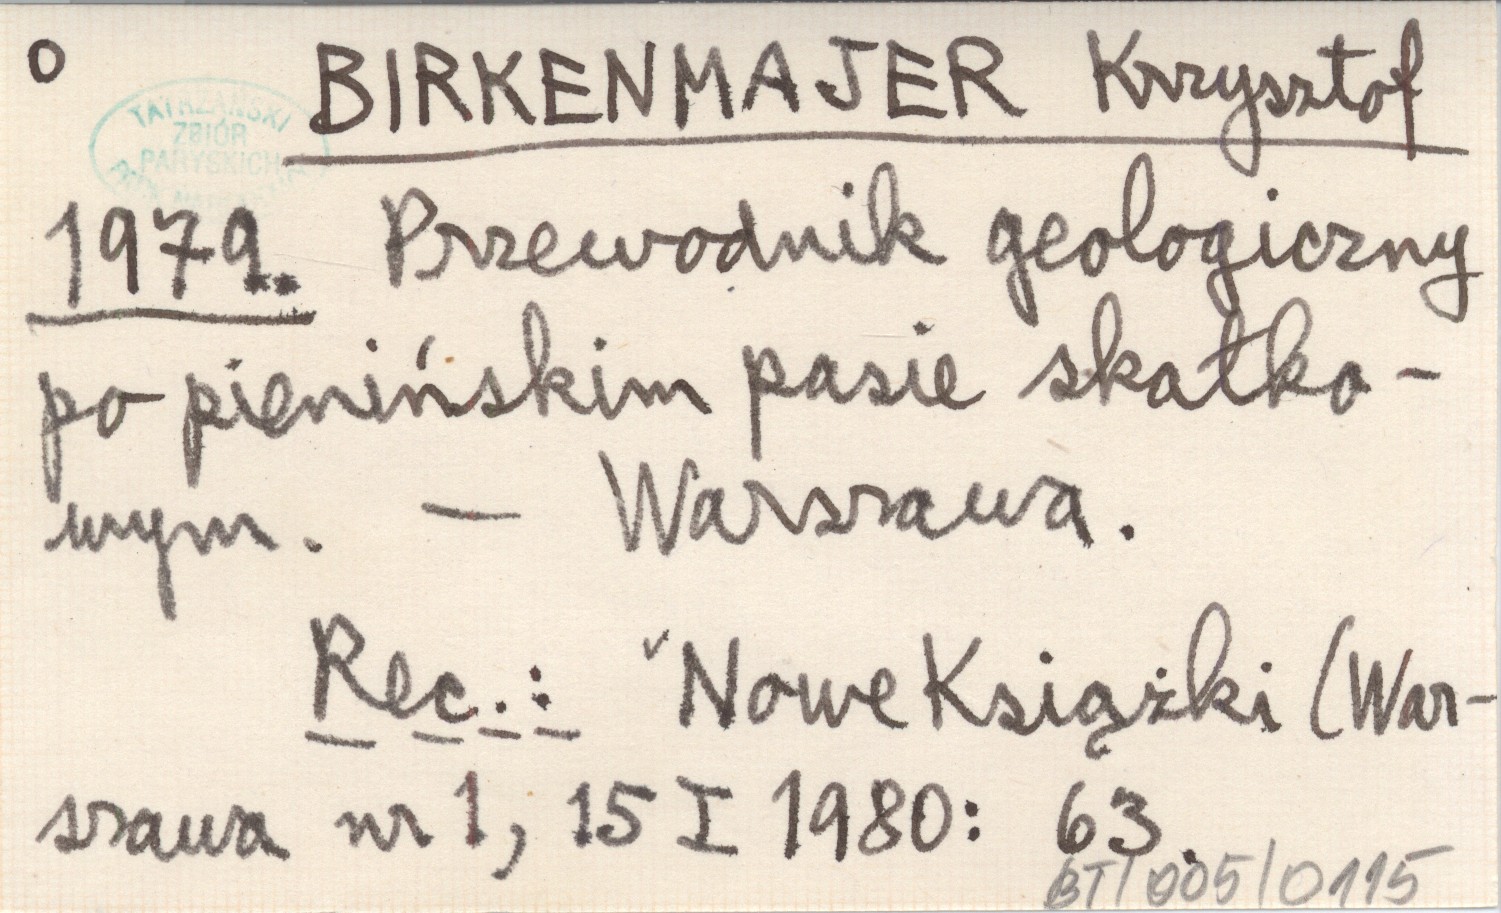 o BIRKENMAJER Krzysztof
TATRZAŃSKI
ZBIÓR
PARYSKICH
1979. Przewodnik geologiczny
po pienińskim pasie skałko-
wym. — Warszawa.
Rec.: Nowe Książki (War-
szawa nr 1, 15 I 1980: 63.
BT/005/0115